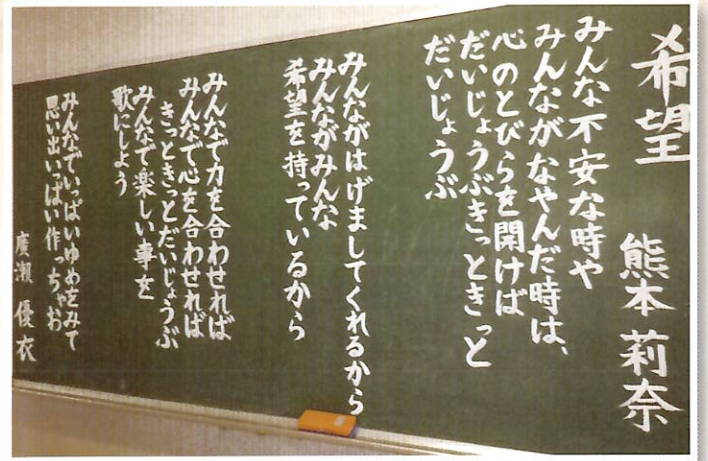 希望　熊本莉奈
みんな不安な時や
みんながなやんだ時は、
心のとびらを開けば
だいじょうぶきっときっと
だいじょうぶ
みんながはげましてくれるから
みんながみんな
希望を持っているから
みんなで力を合わせれば
みんなで心を合わせれば
きっときっとだいじょうぶ
みんなで楽しい事を
歌にしよう
みんなでいっぱいゆめをみて
思い出いっぱい作っちゃお
廣瀬優衣